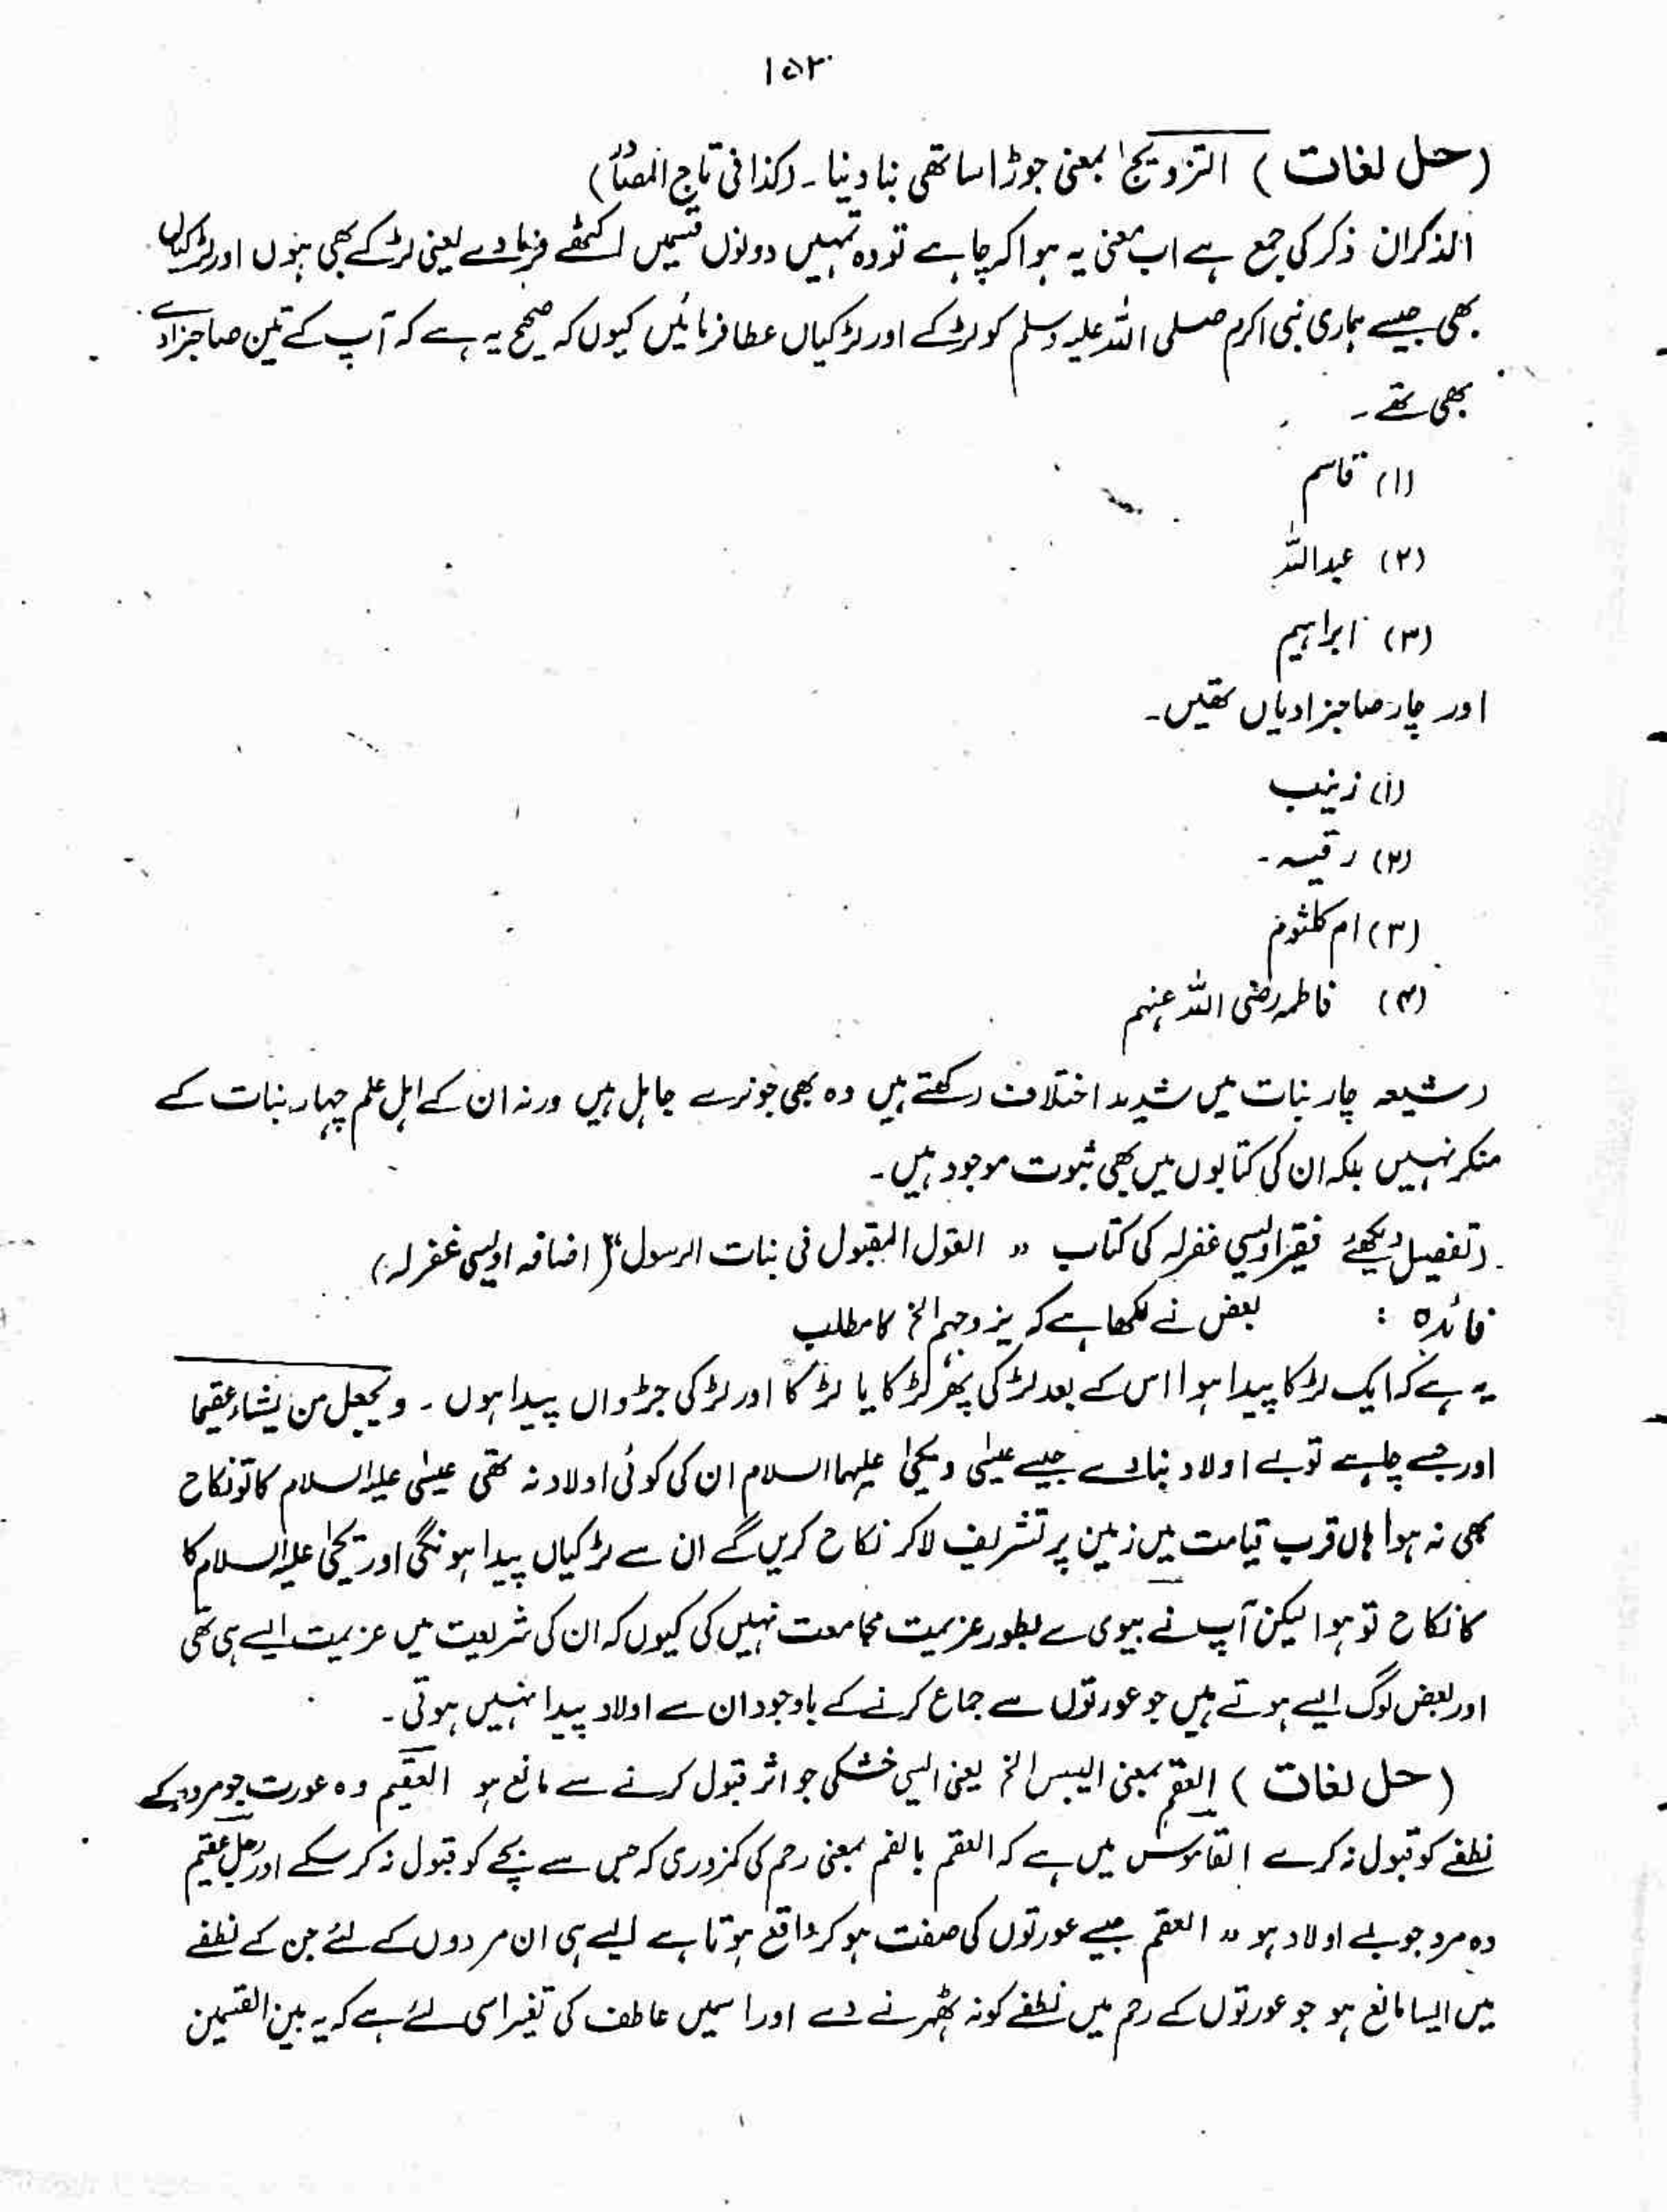 ۱۵۲
(حل لغات) التزویج بمعنی جوڑا ساتھی بنا دینا۔ (کذا فی تاج المصادر)
الذکران ذکر کی جمع ہے اب معنی یہ ہوا کہ چاہے تو وہ تمہیں دونوں قسمیں اکٹھے فرما دے یعنی لڑکے بھی ہوں اور لڑکیاں
بھی جیسے ہماری نبی اکرم صلی اللہ علیہ وسلم کو لڑکے اور لڑکیاں عطا فرمائیں کیوں کہ صحیح یہ ہے کہ آپ کے تین صاحبزادے
بھی تھے۔
(۱) قاسم
(۲) عبداللہ
(۳) ابراہیم
اور چار صاحبزادیاں تھیں۔
(۱) زینب
(۲) رقیہ۔
(۳) ام کلثوم
(۴) فاطمہ رضی اللہ عنہم
(شیعہ چار بنات میں شدید اختلاف رکھتے ہیں وہ بھی جو نرے جاہل ہیں ورنہ ان کے اہل علم چہار بنات کے
منکر نہیں بلکہ ان کی کتابوں میں بھی ثبوت موجود ہیں۔
(تفصیل دیکھئے فقیر اویسی غفرلہ کی کتاب " القول المقبول فی بنات الرسول" (اضافہ اویسی غفرلہ)
فائدہ : بعض نے لکھا ہے کہ یزوجہم الخ کا مطلب
یہ ہے کہ ایک لڑکا پیدا ہوا اس کے بعد لڑکی پھر لڑکا یا لڑکا اور لڑکی جڑواں پیدا ہوں۔ ویجعل من یشاء عقیما
اور جسے چاہے تو بے اولاد بنا دے جیسے عیسیٰ و یحیٰ علیہما السلام ان کی کوئی اولاد نہ تھی عیسیٰ علیہ السلام کا تو نکاح
بھی نہ ہوا ہاں قرب قیامت میں زمین پر تشریف لا کر نکاح کریں گے ان سے لڑکیاں پیدا ہونگی اور یحیٰ علیہ السلام کا
کا نکاح تو ہوا لیکن آپ نے بیوی سے بطور عزیمت مجامعت نہیں کی کیوں کہ ان کی شریعت میں عزیمت ایسے ہی تھی
اور بعض لوگ ایسے ہوتے ہیں جو عورتوں سے جماع کرنے کے باوجود ان سے اولاد پیدا نہیں ہوتی۔
(حل لغات) العقم بمعنی الیبس الخ یعنی ایسی خشکی جو اثر قبول کرنے سے مانع ہو العقیم وہ عورت جو مرد کے
نطفے کو قبول نہ کرے القاموس میں ہے کہ العقم بالضم بمعنی رحم کی کمزوری کہ جس سے بچے کو قبول نہ کر سکے اور رجل عقیم
وہ مرد جو بے اولاد ہو " العقم جیسے عورتوں کی صفت ہو کر واقع ہوتا ہے ایسے ہی ان مردوں کے لئے جن کے نطفے
میں ایسا مانع ہو جو عورتوں کے رحم میں نطفے کو نہ ٹھہرنے دے اور اسمیں عاطف کی تغیر اسی لئے ہے کہ یہ بین القسمین